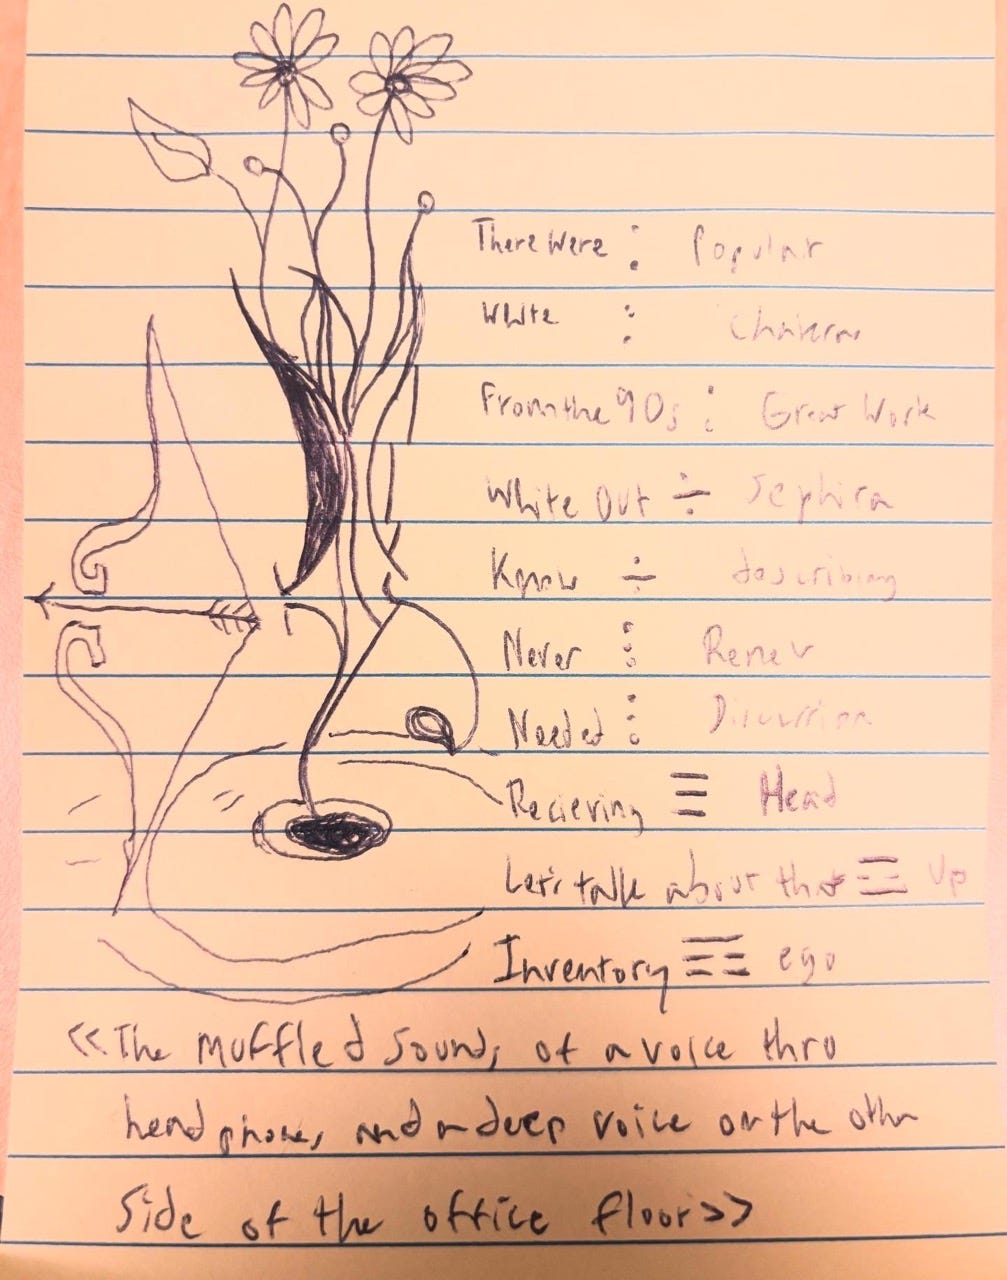 There Were : Popular
White : Chakra
From the 90s : Great Work
White Out ÷ Sephira
Know ÷ describing
Never ⋮ Renew
Needed ⋮ Discussion
Recieving ☰ Head
Let's talk about that Up
Inventory ego
<<The muffled sounds of a voice thru
headphones and a deep voice on the other
Side of the office floor>>